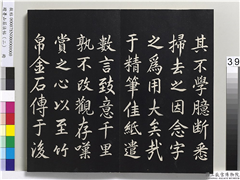 其不學臆斷悉
掃去之因念字
之爲用大矣哉
于精筆佳紙遣
數言致意千里
孰不改觀存嘆
賞之心以至竹
帛金石傳于後
39